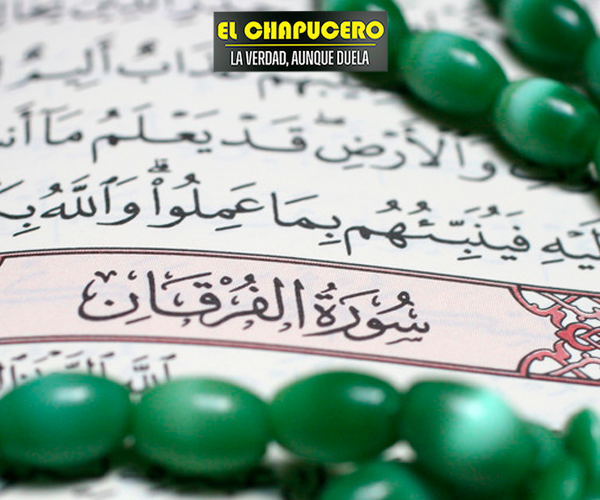 EL CHAPUCERO
LA VERDAD, AUNQUE DUELA
عَذَابٌ أَلِيمٌ
وَٱلْأَرْضِ ۖ قَدْ يَعْلَمُ مَآ
فَيُنَبِّئُهُم بِمَا عَمِلُوا۟ ۗ وَٱللَّهُ
سُورَةُ الْفُرْقَانِ
ٱللَّهِ